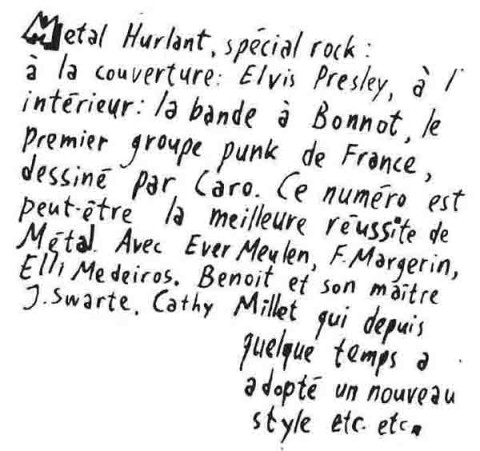 Metal Hurlant, spécial rock :
à la couverture: Elvis Presley, à l'
intérieur: la bande à Bonnot, le
premier groupe punk de France,
dessiné par Caro. Ce numéro est
peut-être la meilleure réussite de
Métal. Avec Ever Meulen, F. Margerin,
Elli Medeiros, Benoit et son maître
J. Swarte, Cathy Millet qui depuis
quelque temps a
adopté un nouveau
style etc. etc.